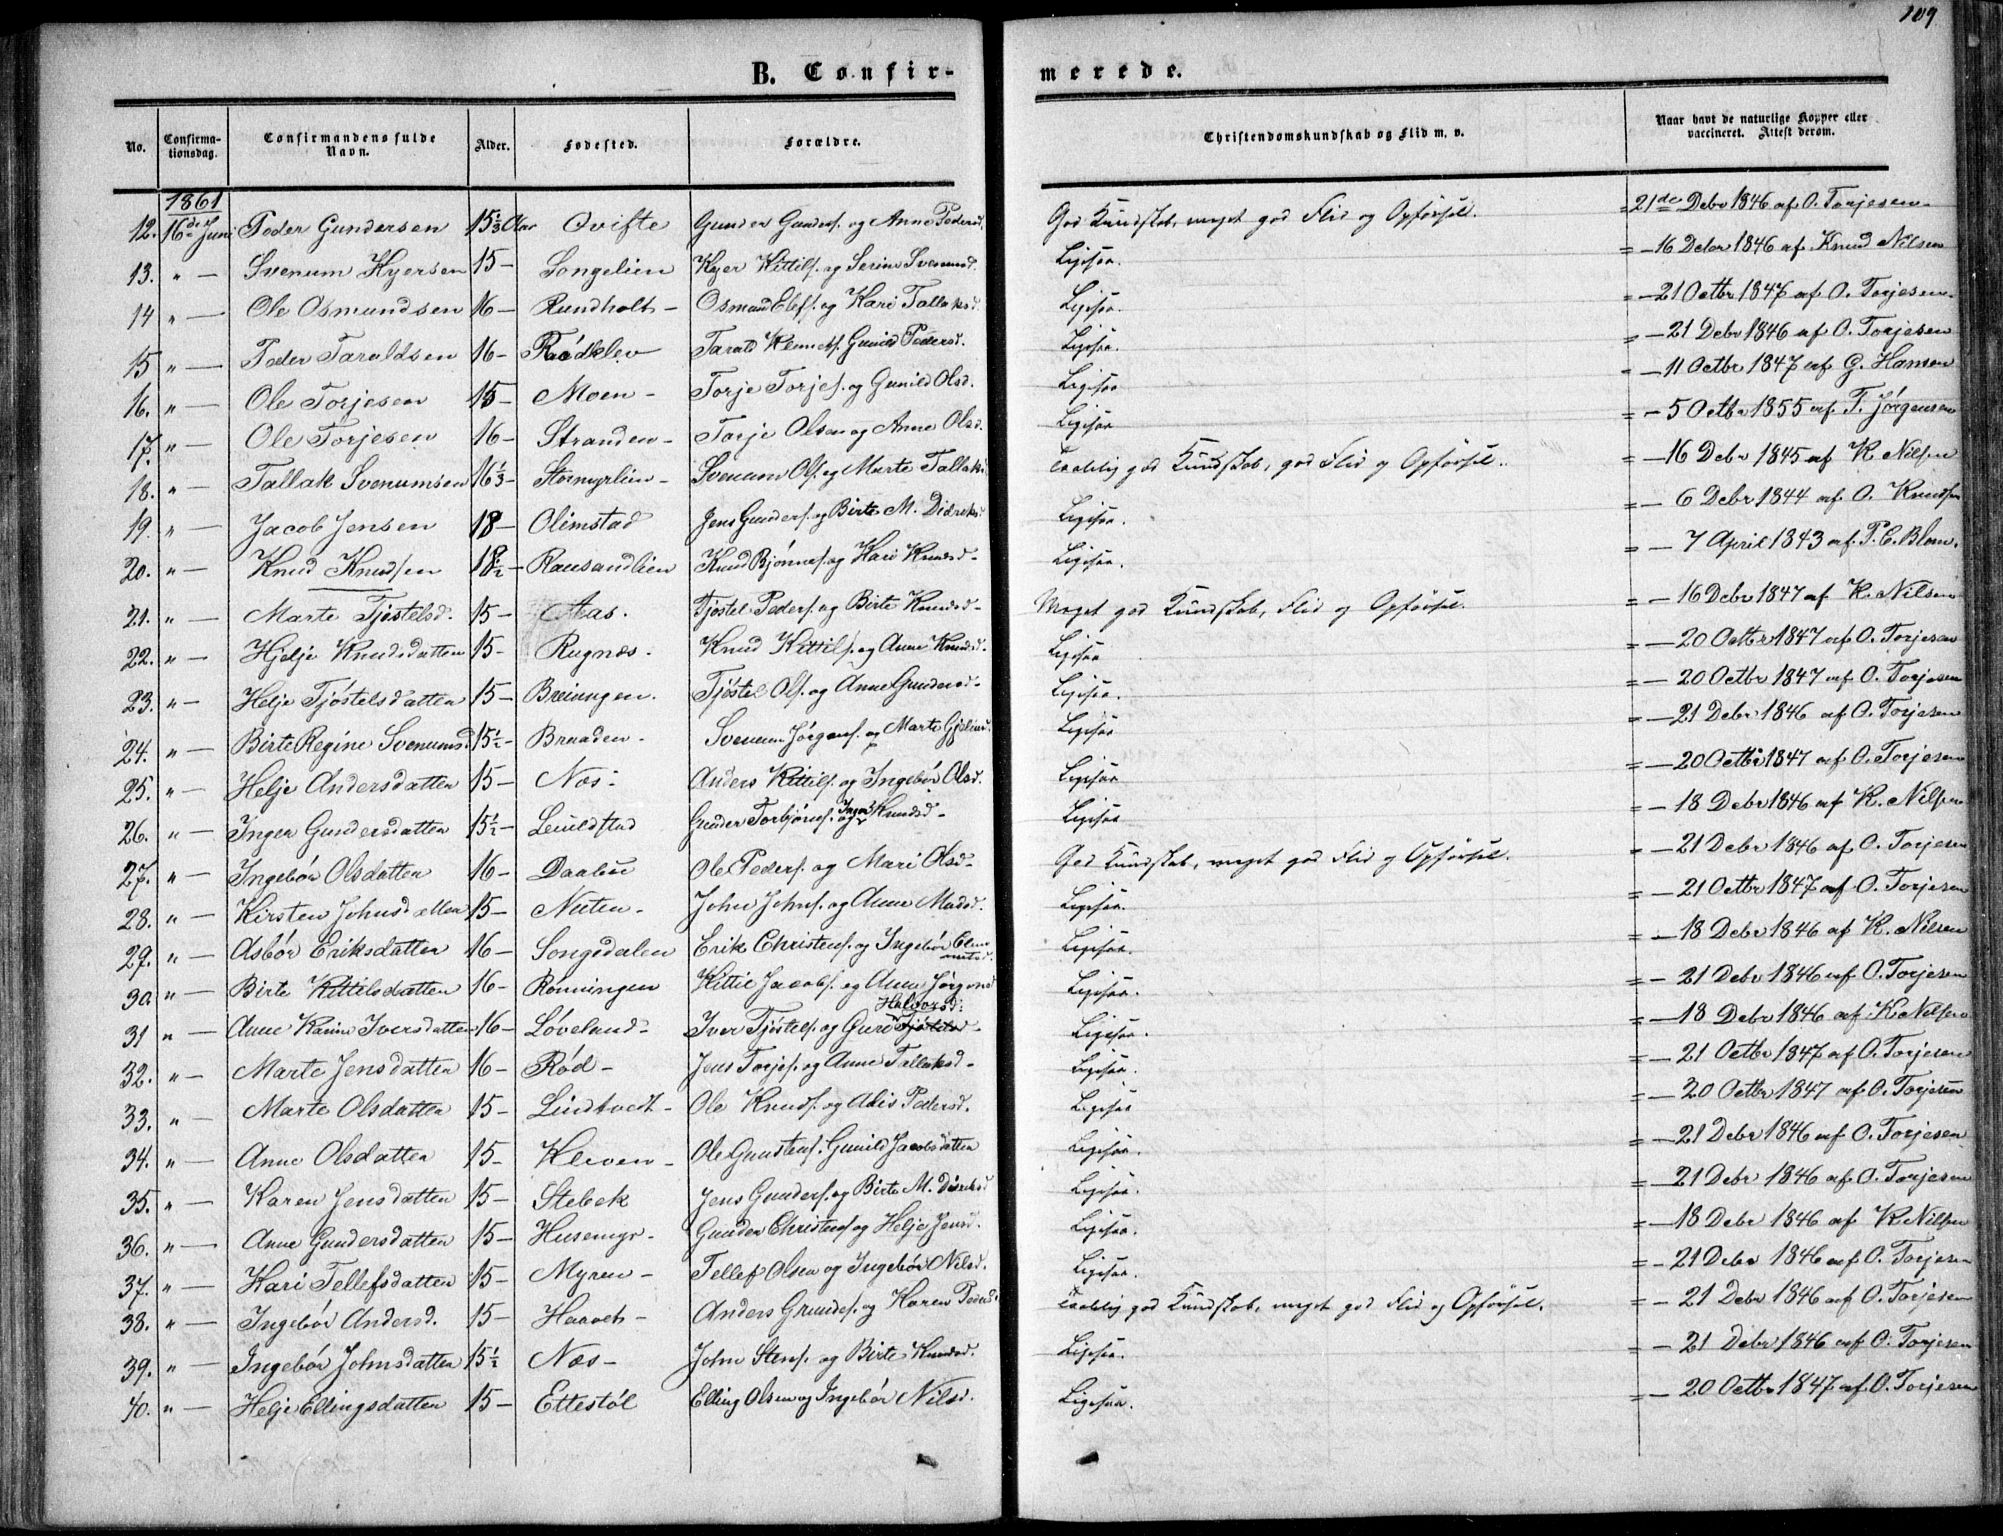 109
B. Confirmerede.
No. Confirmationsdag. Confirmandens fulde Navn. Alder. Fødested. Forældre. Christendomskundskab og Flid m. v. Naar havt de naturlige Kopper eller vaccineret. Attest derom.
1861
12. 16de Juni Peder Gundersen 15 1/3 Aar Qvifte Gunder Gunders. og Anne Pedersd. God Kundskab, meget god Flid og Opførsel. = 21de Debr 1846 af O. Torjesen
13. " — Svenum Kyersen 15 — Songelien Kyer Kittils. og Serine Svenumsd. Ligesaa. = — 16 Debr 1846 af Knud Nilsen
14 " — Ole Osmundsen 16 — Rundholt — Osmund Elefs. og Kari Tallaksd. Ligesaa. = — 21 Octbr 1847 af O. Torjesen
15 " — Peder Taraldsen 16 — Rødklev Tarald Klemets. Gunild Pedersd. Ligesaa. = — 21 Debr 1846 af O. Torjesen
16. " — Ole Torjesen 15 — Moen — Torje Torjes. og Gunild Olsd. Ligesaa = — 11 Octbr 1847 af G. Hansen
17. " — Ole Torjesen 16 — Stranden — Torje Olsen og Anne Olsd. Ligesaa = — 5 Octbr 1855 af T. Jørgensen
18. " — Tallak Svenumsen 16 1/3 — Stormyrlien — Svenum Ols. og Marte Tallaks. Taalelig god Kundskab, god Flid og Opførsel. = — 16 Debr 1845 af K. Nilsen
19. " — Jacob Jensen 18 — Olimstad Jens Gunders. og Birte M. Didreksd. Ligesaa. = — 6 Debr 1844 af O. Knudsen
20. " — Knud Knudsen 18 1/2 — Rausandlien Knud Bjønnes. og Kari Knudsd — Ligesaa. = — 7 April 1843 af P. C. Blom.
21. " — Marte Tjøstelsd. 15 — Aas. Tjøstel Peders. og Birte Knudsd — Meget god Kundskab, Flid og Opførsel. = — 16 Debr 1847 af K. Nilsen
22. " — Hjelje Knudsdatten 15 — Rugnæs. Knud Kittils. og Anne Knudsd. Ligesaa = — 20 Octbr 1847 af O. Torjesen
23. " — Helje Tjøstelsdatten 15 — Breiungen. Tjøstel Ols. og Anne Gundersd — Ligesaa. = — 20 Octbr 1847 af O. Torjesen
24. " — Birte Regine Svenumsd 15 1/2 — Braaden — Svenum Jørgens. og Marte Ligesaa = — 21 Debr 1846 af O. Torjesen
25. " — Helje Andersdatten 15 — Næs — Anders Kittils. og Ingebør Olsd. Ligesaa = — 20 Octbr 1847 af O. Torjesen
26. " — Inger Gundersdatten 15 1/2 — Leuildstad Gunder Torbjørns. og Inger Knudsd — Ligesaa = — 18 Debr 1846 af K. Nilsen
27. " — Ingebør Olsdatten 16 — Daalue Ole Peders. og Mari Olsd — God Kundskab, meget god Flid og Opførsel. = — 21 Debr 1846 af O. Torjesen
28. " — Kirsten Johnsdatten 15 — Nuten — John Johns. og Anne Madsd. Ligesaa. = — 21 Octbr 1847 af O. Torjesen
29. " — Asbør Eriksdatten 16 — Songedalen Erik Christens. og Ingebør Clemetsd. Ligesaa = — 18 Debr 1846 af K. Nilsen
30 " — Birte Kittilsdatten 16 — Rønningen Kittil Jacobs. og Anne Jørgensd Ligesaa. = — 21 Debr 1846 af O. Torjesen
31 " — Anne Karine Iversdatten 16 — Løveland — Iver Tjøstels. og Guro Halvorsd. Ligesaa. = — 18 Debr 1846 af K. Nilsen
32. " — Marte Jensdatten 16 — Rød — Jens Torjes. og Anne Tallaksd — Ligesaa. = — 21 Octbr 1847 af O. Torjesen
33. " — Marte Olsdatten 15 — Lindtvedt — Ole Knuds. og Alis Pedersd. Ligesaa = — 20 Octbr 1847 af O. Torjesen
34. " — Anne Olsdatten 15 — Kleven — Ole Gunstens. Gunild Jacobsdatten Ligesaa. = — 21 Debr 1846 af O. Torjesen
35. " — Karen Jensdatten 15 — Stebek Jens Gunders. og Birte M. Didreksd Ligesaa. = — 21 Debr 1846 af O. Torjesen
36. " — Anne Gundersdatten 15 — Husemyr — Gunder Christens og Helje Jensd. Ligesaa. = — 18 Debr 1846 af K. Nilsen
37. " — Kari Tellefsdatten 15 — Myren — Tellef Olsen og Ingebør Nilsd. Ligesaa. = — 21 Debr 1846 af O. Torjesen
38. " — Ingebør Andersd. 15 — Haavet — Anders Grundes. og Karen Pedersd. Taalelig god Kundskab, meget god Flid og Opførsel. = — 21 Debr 1846 af O. Torjesen
39. " — Ingebør Johnsdatten 15 1/2 Næs — John Stens. og Birte Knudsd. Ligesaa. = — 21 Debr 1846 af O. Torjesen
40. " — Helje Ellingsdatten 15 — Ettestøl Elling Olsen og Ingebør Nilsd. Ligesaa. = — 20 Octbr 1847 af O. Torjesen